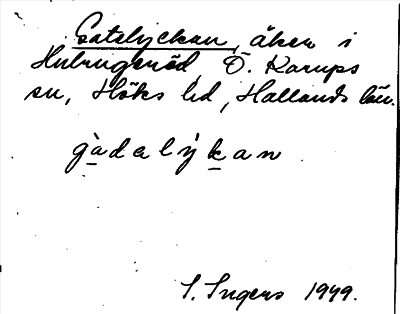 Gatelyckan, åker i
Hulrugeröd, Ö. Karups
sn, Höks hd, Hallands län.
gàdalýkan
S. Ingers 1949.